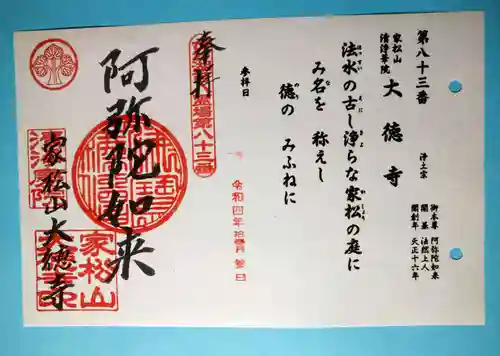 第八十三番
浄土宗
家松山
清浄華院
大徳寺
御本尊 阿弥陀如来
開基 法然上人
開創年 天正十六年
法水の古し浄らな家松の庭に
み名を 称えし
徳の みふねに
参拝日
令和四年拾壱月参日
奉拝
霊場第八十三番
阿弥陀如来
家松山大徳寺
家松山